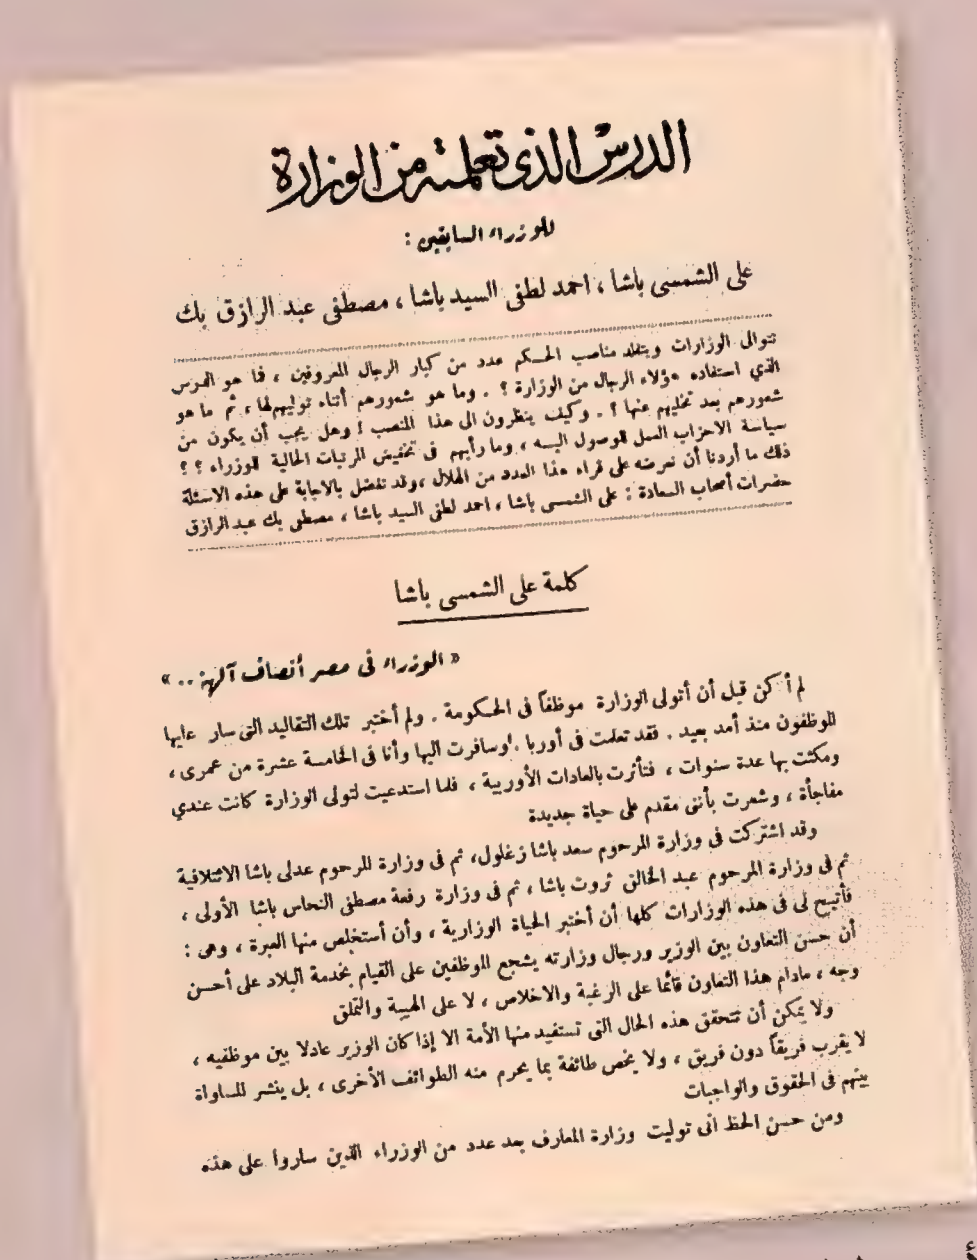 الدرس الذى تعلمته من الوزارة
للوزراء السابقين :
على الشمسى باشا ، احمد لطفى السيد باشا ، مصطفى عبد الرازق بك
تتوالى الوزارات ويتقلد مناصب الحكم عدد من كبار الرجال المعروفين ، فما هو الدرس
الذي استفاده هؤلاء الرجال من الوزارة ؟ . وما هو شعورهم أثناء توليهم لها ، ثم ما هو
شعورهم بعد تخليهم عنها ؟ . وكيف ينظرون الى هذا المنصب ! وهل يجب أن يكون من
سياسة الاحزاب العمل للوصول اليه ، وما رأيهم فى تخفيض المرتبات الحالية للوزراء ؟ ؟
ذلك ما أردنا أن نعرضه على قراء هذا العدد من الهلال ، وقد تفضل بالاجابة على هذه الاسئلة
حضرات أصحاب السعادة : على الشمسى باشا ، احمد لطفى السيد باشا ، مصطفى بك عبد الرازق
كلمة على الشمسى باشا
« الوزراء فى مصر أنصاف آلهة .. »
لم أكن قبل أن أتولى الوزارة موظفاً فى الحكومة . ولم أختبر تلك التقاليد التى سار عليها
الموظفون منذ أمد بعيد . فقد تعلمت فى أوربا . وسافرت اليها وأنا فى الخامسة عشرة من عمرى ،
ومكثت بها عدة سنوات ، فتأثرت بالعادات الأوربية ، فلما استدعيت لتولى الوزارة كانت عندي
مفاجأة ، وشعرت بأننى مقدم على حياة جديدة
وقد اشتركت فى وزارة المرحوم سعد باشا زغلول، ثم فى وزارة المرحوم عدلى باشا الائتلافية
ثم فى وزارة المرحوم عبد الخالق ثروت باشا ، ثم فى وزارة رفعة مصطفى النحاس باشا الأولى ،
فأتيح لى فى هذه الوزارات كلها أن أختبر الحياة الوزارية ، وأن أستخلص منها العبرة ، وهى :
أن حسن التعاون بين الوزير ورجال وزارته يشجع الموظفين على القيام بخدمة البلاد على أحسن
وجه ، مادام هذا التعاون قائما على الرغبة والاخلاص ، لا على الهيبة والتملق
ولا يمكن أن تتحقق هذه الحال التى تستفيد منها الأمة الا إذا كان الوزير عادلا بين موظفيه ،
لا يقرب فريقاً دون فريق ، ولا يخص طائفة بما يحرم منه الطوائف الأخرى ، بل ينشر المساواة
بينهم فى الحقوق والواجبات
ومن حسن الحظ انى توليت وزارة المعارف بعد عدد من الوزراء الذين ساروا على هذه